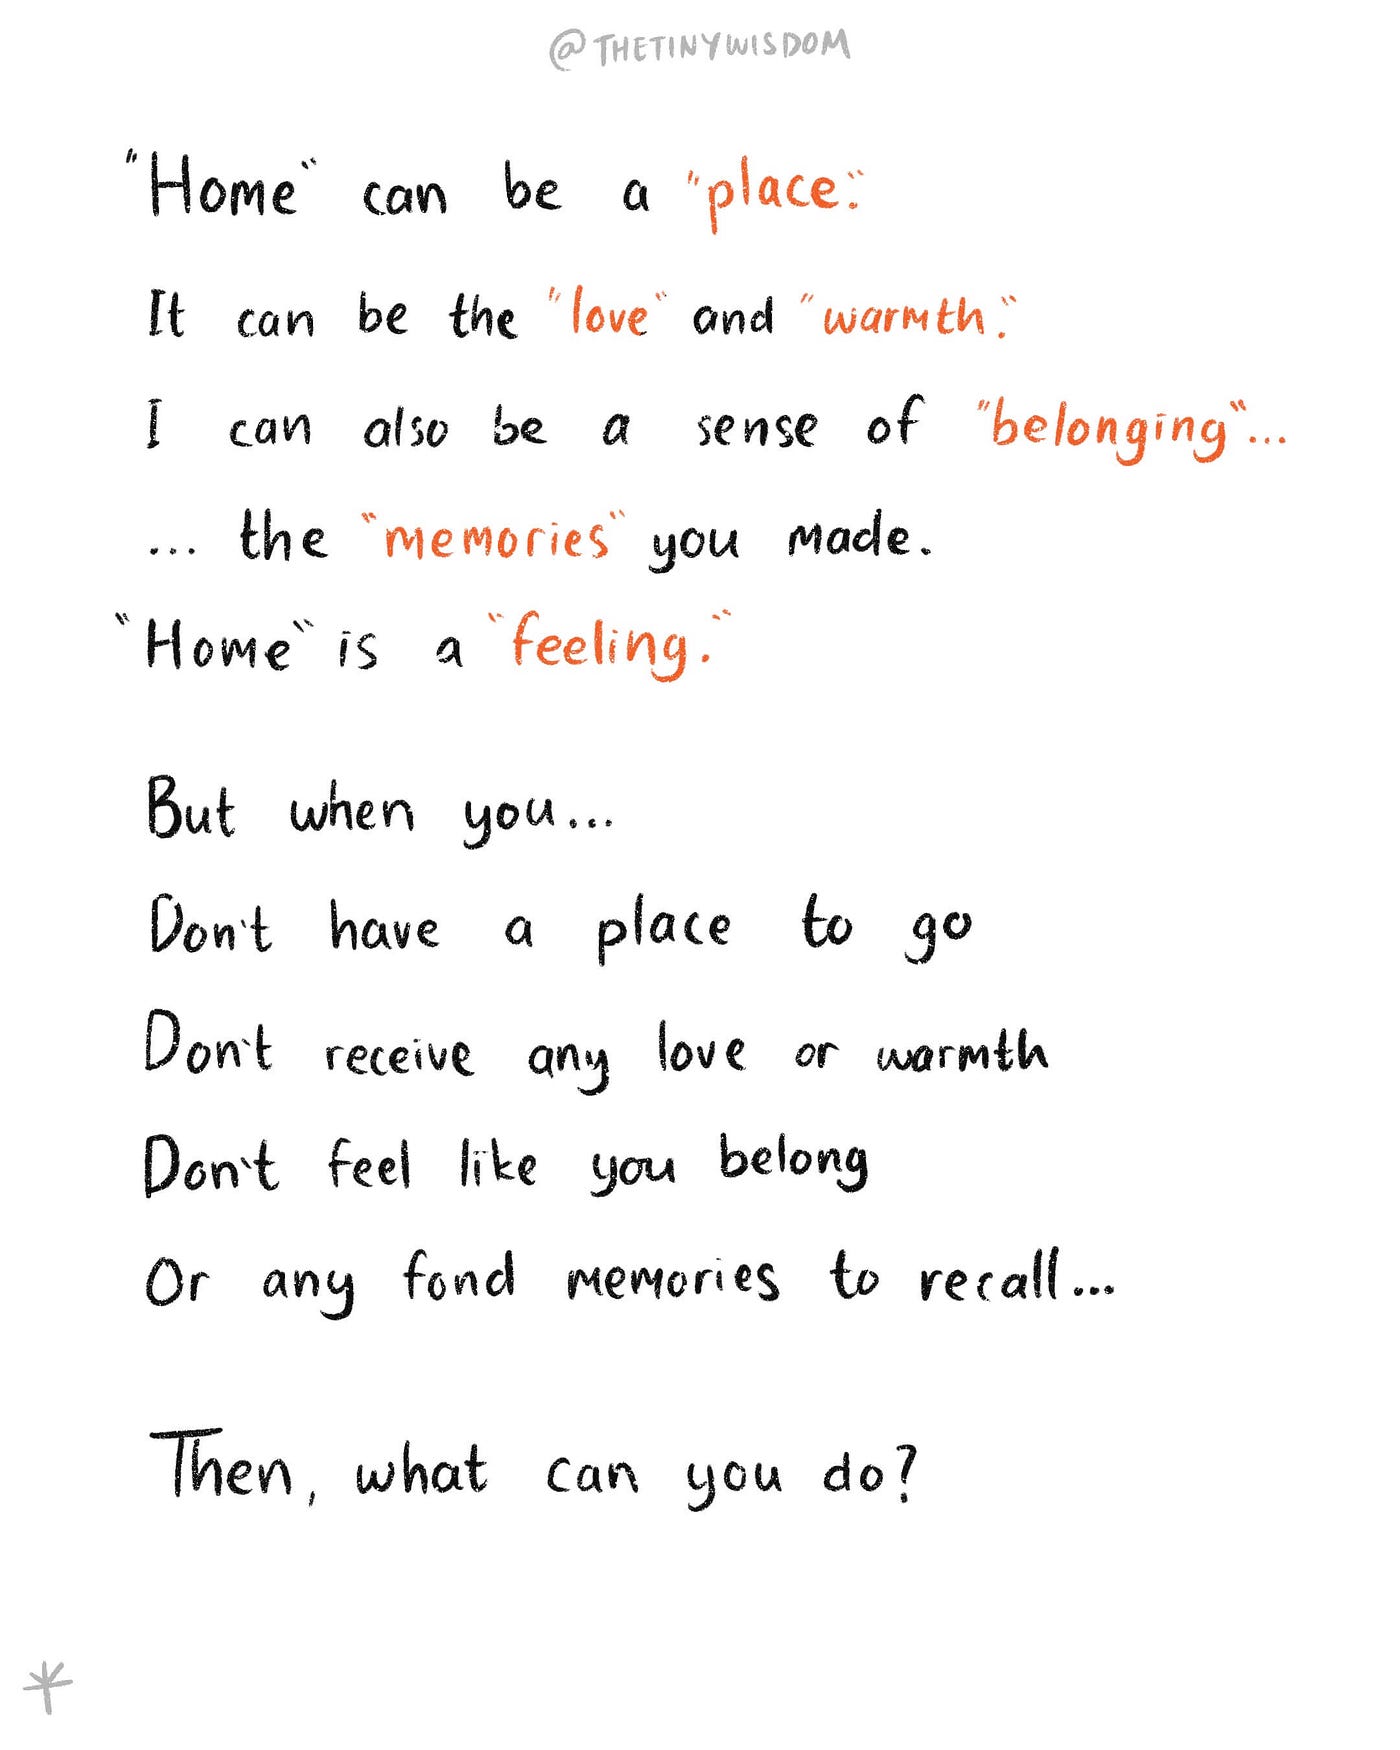 @THETINYWISDOM
"Home" can be a "place."
It can be the "love" and "warmth."
I can also be a sense of "belonging"...
... the "memories" you made.
"Home" is a "feeling."
But when you...
Don't have a place to go
Don't receive any love or warmth
Don't feel like you belong
Or any fond memories to recall...
Then, what can you do?